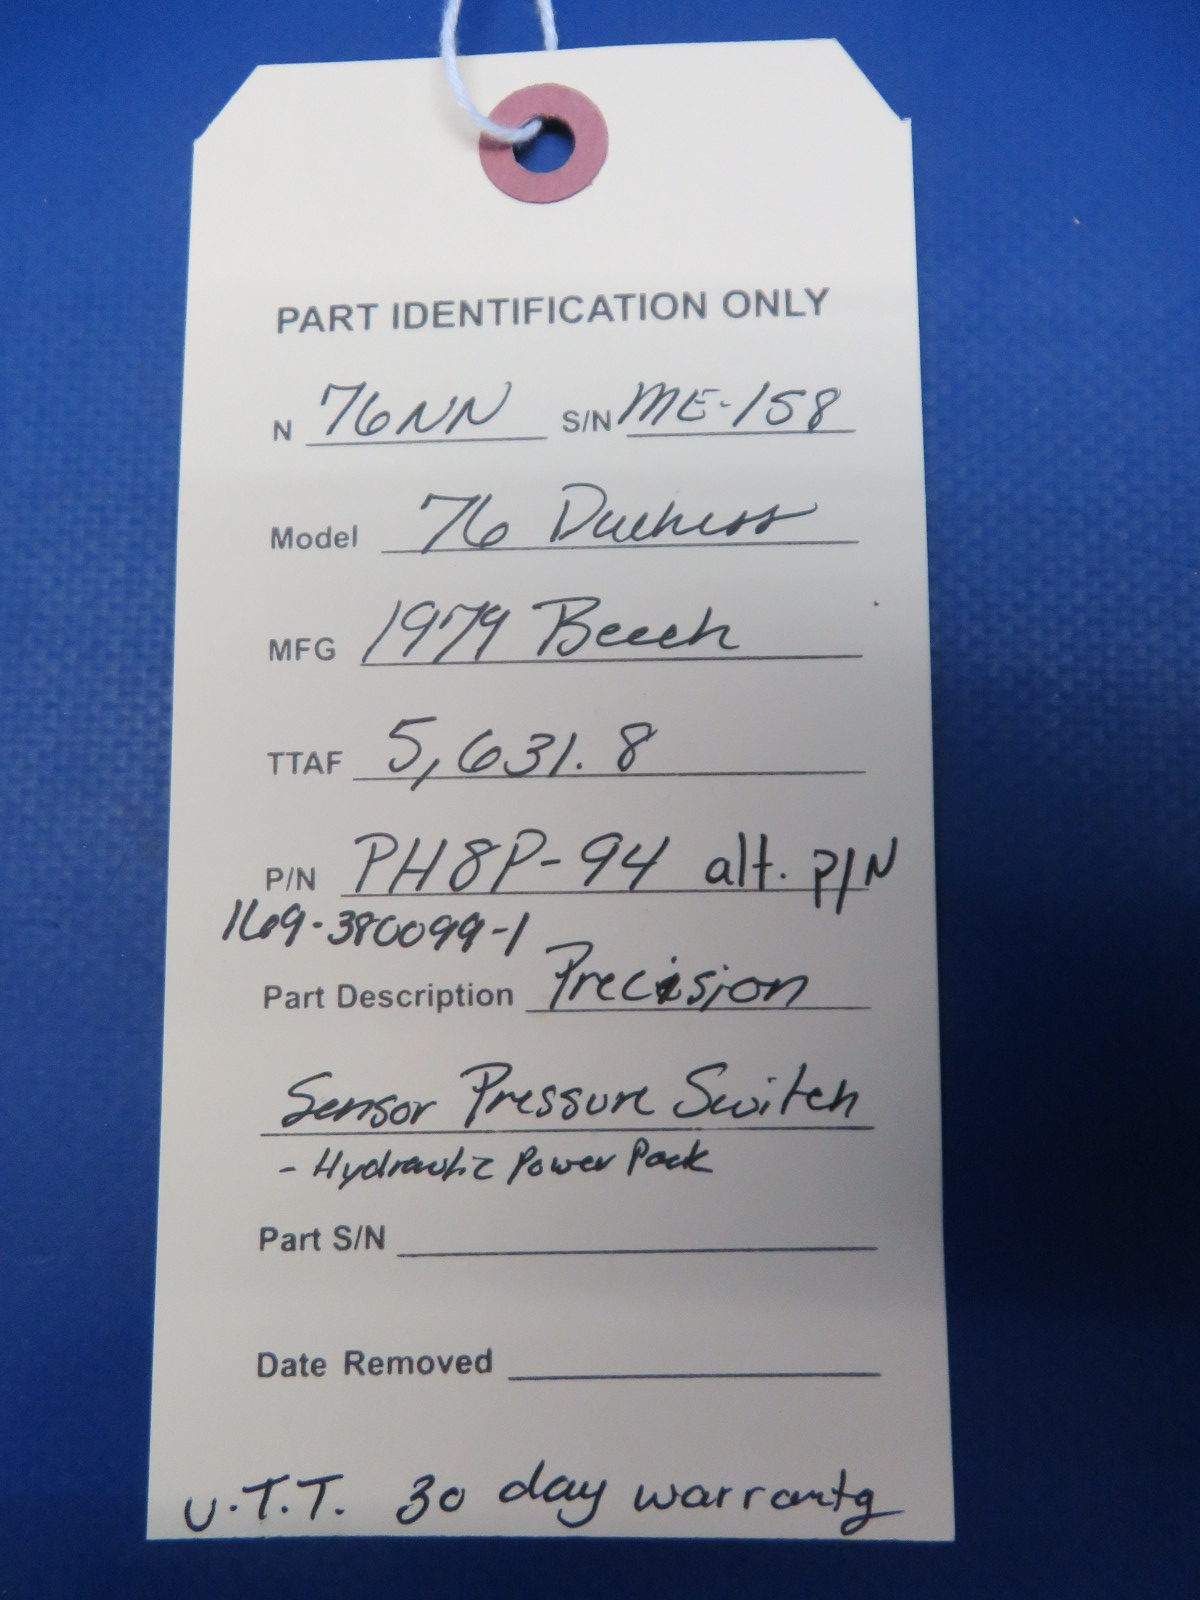 PART IDENTIFICATION ONLY
N 76NN S/N ME-158
Model 76 Duchess
MFG 1979 Beech
TTAF 5,631.8
P/N PH8P-94 alt. P/N
169-380099-1
Part Description Precision
Sensor Pressure Switch
- Hydraulic Power Pack
Part S/N
Date Removed
U.T.T. 30 day warranty